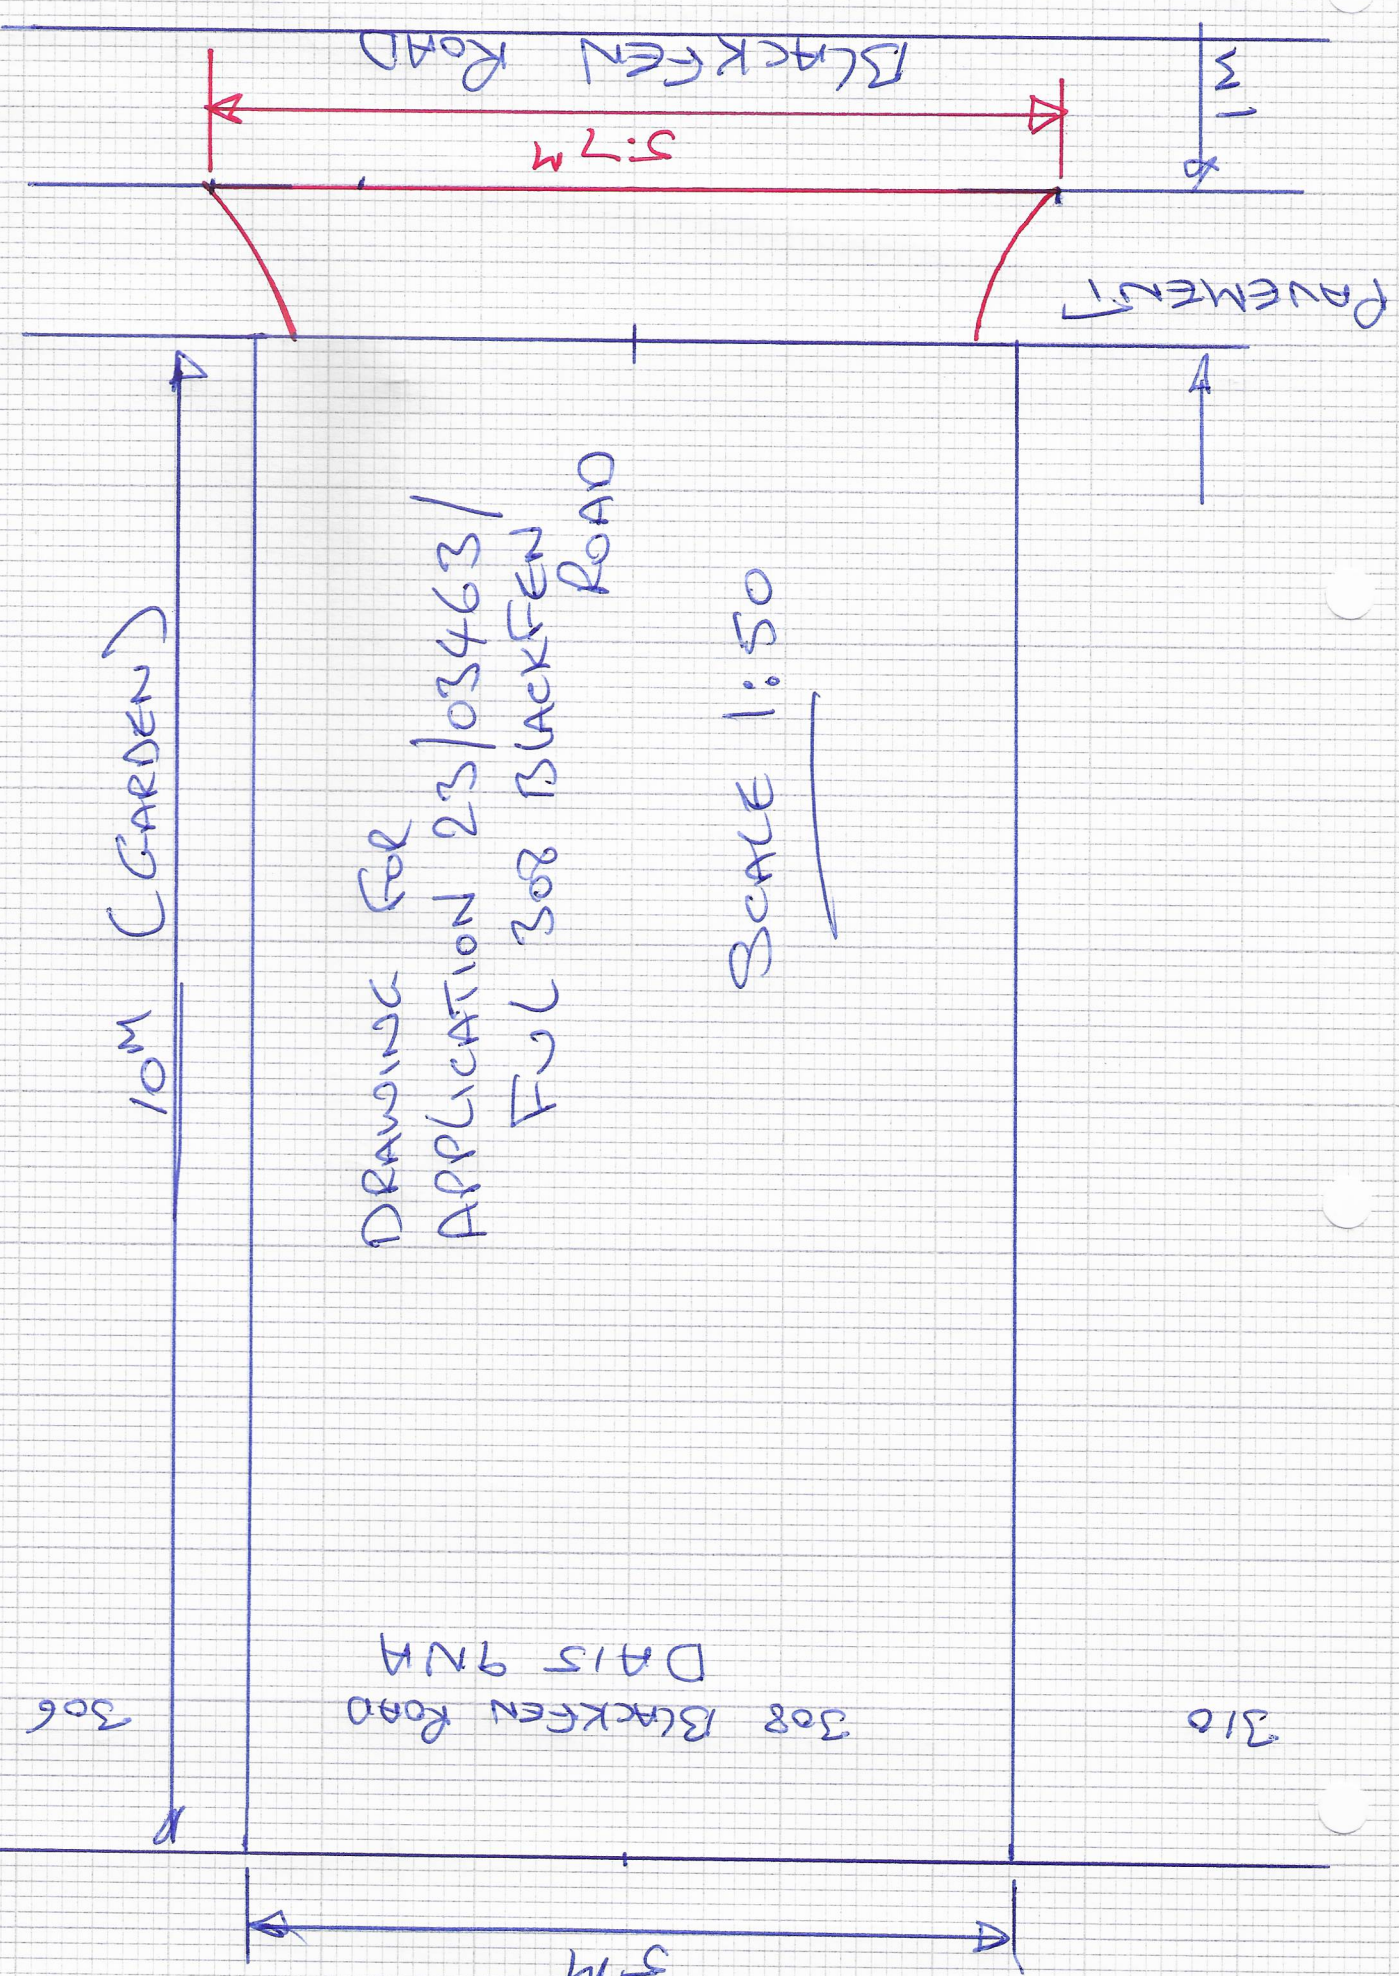 BLACKFEN ROAD
5.7 M
1 M
PAVEMENT
10M (GARDEN)
DRAWING FOR
APPLICATION 23/03463/
FUL 308 BLACKFEN
ROAD
SCALE 1:50
308 BLACKFEN ROAD
DA15 9NA
306
310
5M